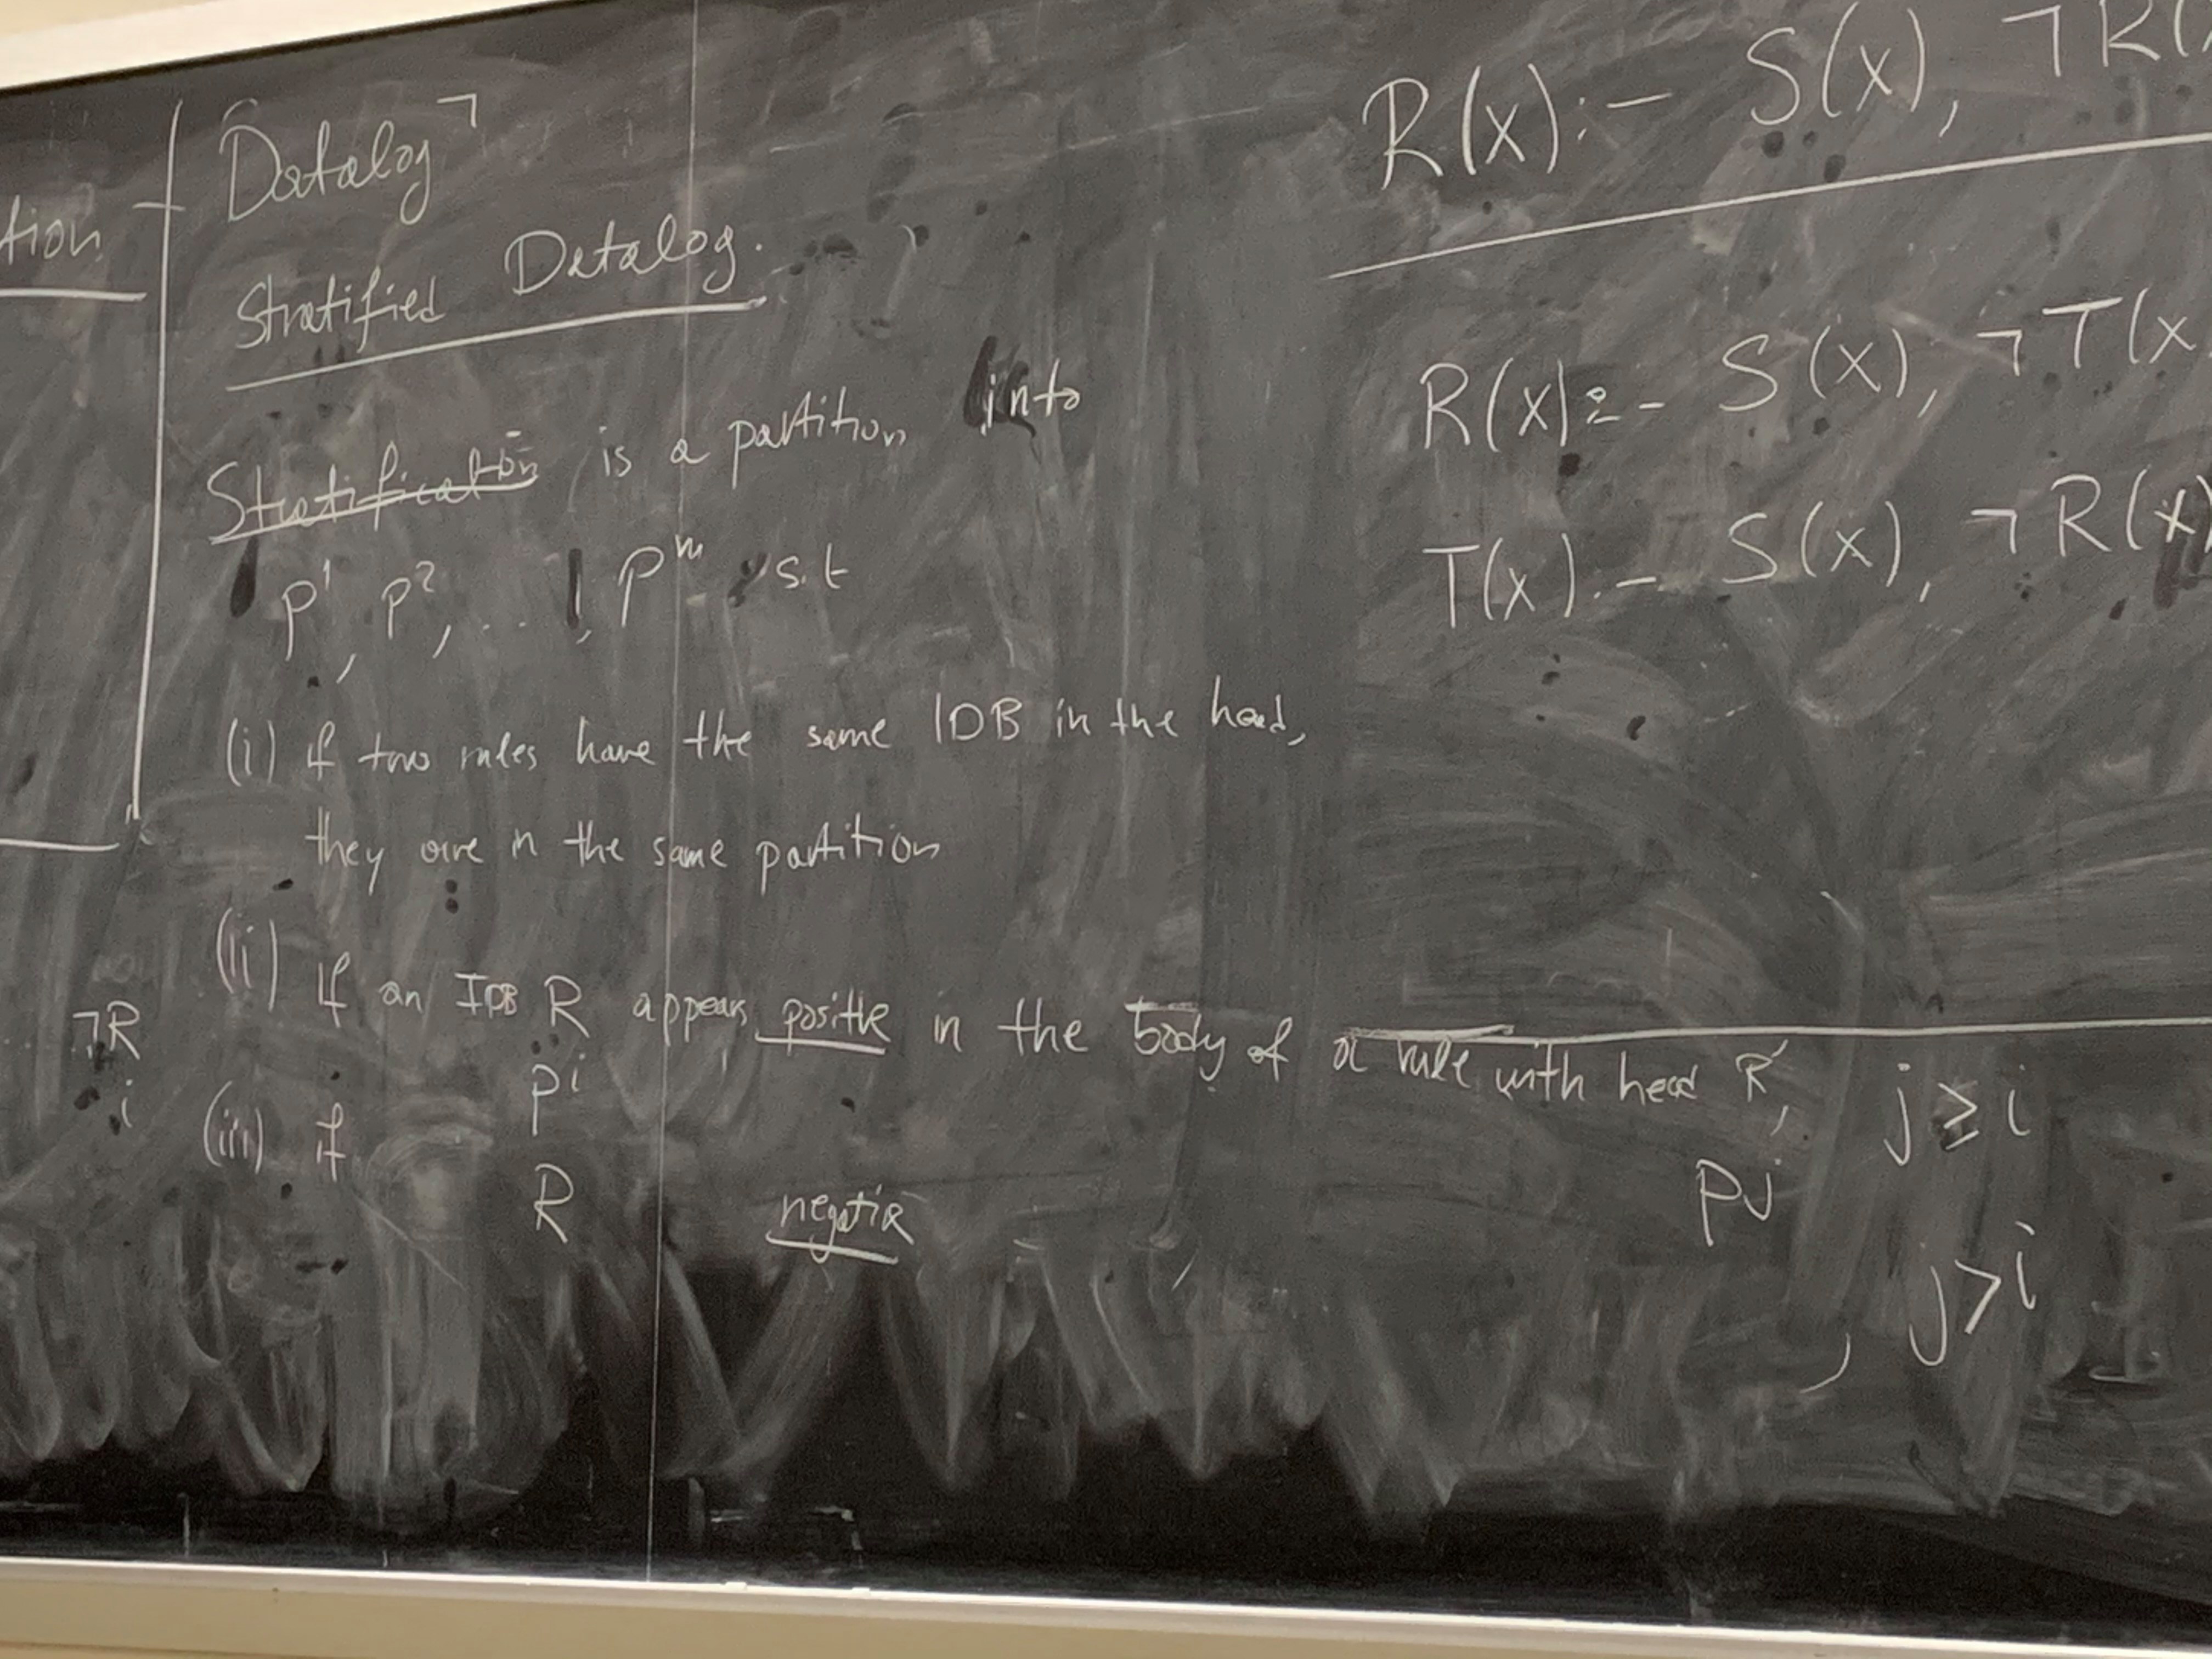 tion
Datalog¬
Stratified Datalog.
Stratification is a partition into
P¹, P², . . , Pᵐ s.t
(i) if two rules have the same IDB in the head,
they are in the same partition
(ii) if an IDB R appears positive in the body of a rule with head R', j ≥ i
Pⁱ Pʲ
(iii) if R negative , j > i
¬R
i
R(x) :- S(x), ¬R(
R(x) :- S(x), ¬T(x
T(x) :- S(x), ¬R(x)